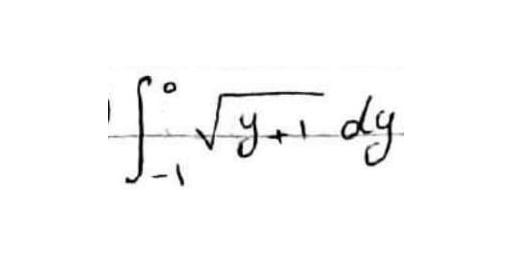 ∫₋₁⁰ √(y+1) dy